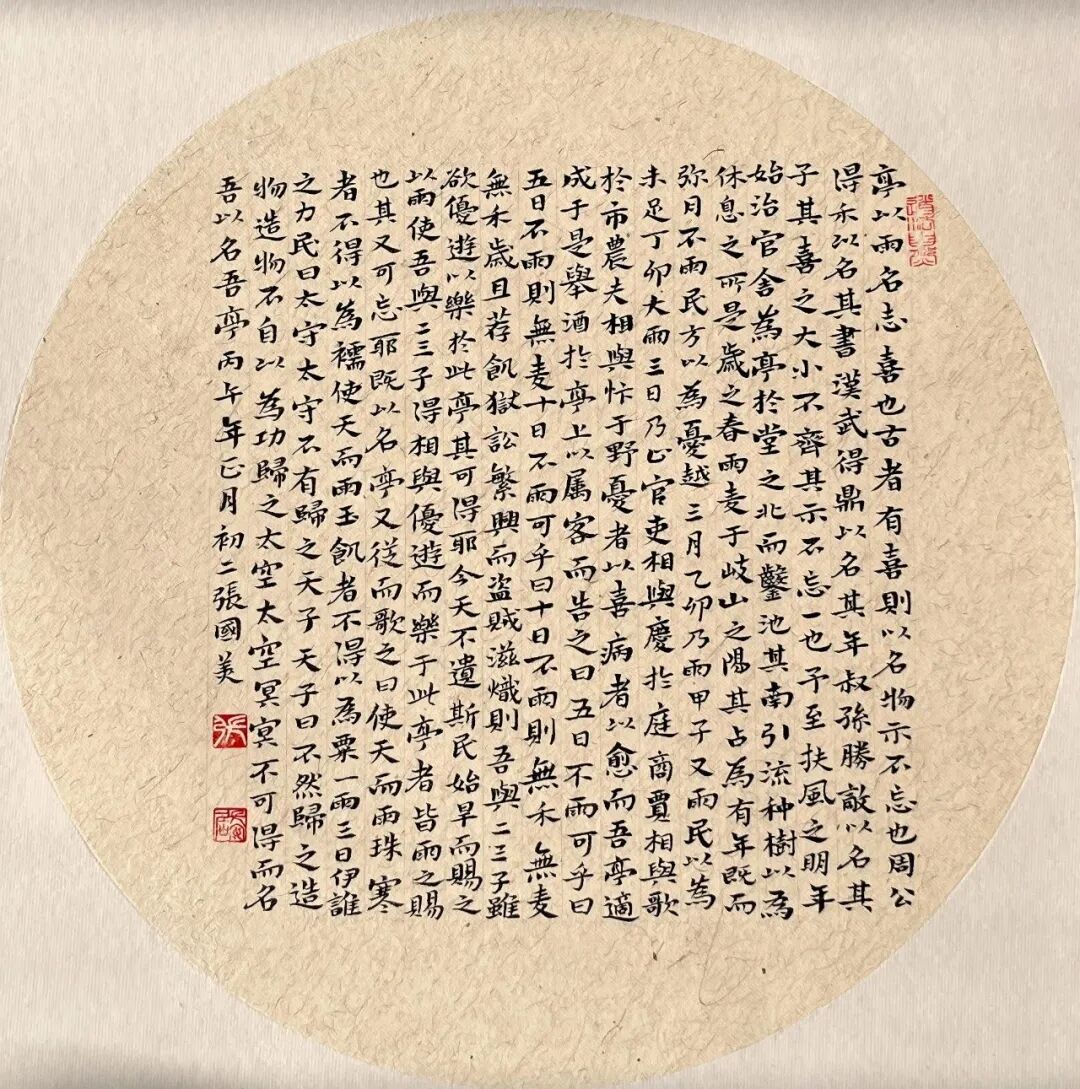 道法自然
亭以雨名志喜也古者有喜則以名物示不忘也周公
得禾以名其書漢武得鼎以名其年叔孫勝敵以名其
子其喜之大小不齊其示不忘一也予至扶風之明年
始治官舍為亭於堂之北而鑿池其南引流种樹以為
休息之所是歲之春雨麦于岐山之陽其占為有年既而
弥月不雨民方以為憂越三月乙卯乃雨甲子又雨民以為
未足丁卯大雨三日乃止官吏相與慶於庭商賈相與歌
於市農夫相與忭于野憂者以喜病者以愈而吾亭適
成于是舉酒於亭上以属客而告之曰五日不雨可乎曰
五日不雨則無麦十日不雨可乎曰十日不雨則無禾無麦
無禾歲且荐飢獄訟繁興而盗賊滋熾則吾與二三子雖
欲優遊以樂於此亭其可得耶今天不遺斯民始旱而賜之
以雨使吾與二三子得相與優遊而樂于此亭者皆雨之賜
也其又可忘耶既以名亭又從而歌之曰使天而雨珠寒
者不得以為襦使天而雨玉飢者不得以為粟一雨三日伊誰
之力民曰太守太守不有歸之天子天子曰不然歸之造
物造物不自以為功歸之太空太空冥冥不可得而名
吾以名吾亭丙午年正月初二張國美
張